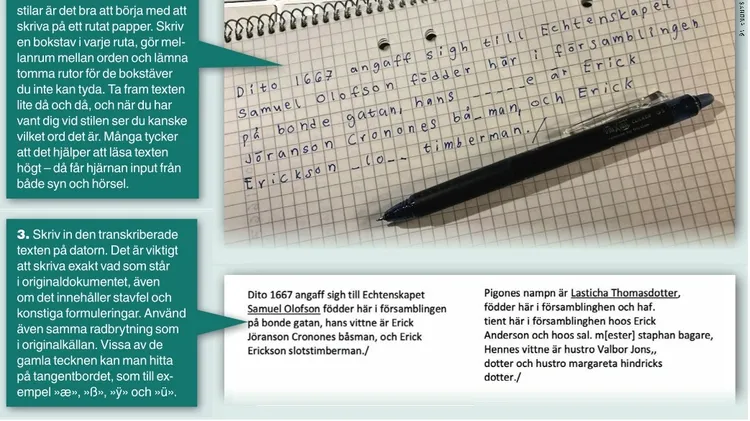 stilar är det bra att börja med att
skriva på ett rutat papper. Skriv
en bokstav i varje ruta, gör mel-
lanrum mellan orden och lämna
tomma rutor för de bokstäver
du inte kan tyda. Ta fram texten
lite då och då, och när du har
vant dig vid stilen ser du kanske
vilket ord det är. Många tycker
att det hjälper att läsa texten
högt – då får hjärnan input från
både syn och hörsel.
Dito 1667 angaff sigh till Echtenskapet
Samuel Olofson födder här i församlingen
på bonde gatan, hans _ _ _ _ _ e är Erick
Jöranson Cronones bå_man, och Erick
Erickson _lo_ _ timberman./
3. Skriv in den transkriberade
texten på datorn. Det är viktigt
att skriva exakt vad som står
i originaldokumentet, även
om det innehåller stavfel och
konstiga formuleringar. Använd
även samma radbrytning som
i originalkällan. Vissa av de
gamla tecknen kan man hitta
på tangentbordet, som till ex-
empel »æ», »ß», »ÿ» och »ü».
Dito 1667 angaff sigh till Echtenskapet
Samuel Olofson födder här i församlingen
på bonde gatan, hans vittne är Erick
Jöranson Cronones båsman, och Erick
Erickson slotstimberman./
Pigones nampn är Lasticha Thomasdotter,
födder här i församblinghen och haf.
tient här i församblinghen hoos Erick
Anderson och hoos sal. m[ester] staphan bagare,
Hennes vittne är hustro Valbor Jons,,
dotter och hustro margareta hindricks
dotter./